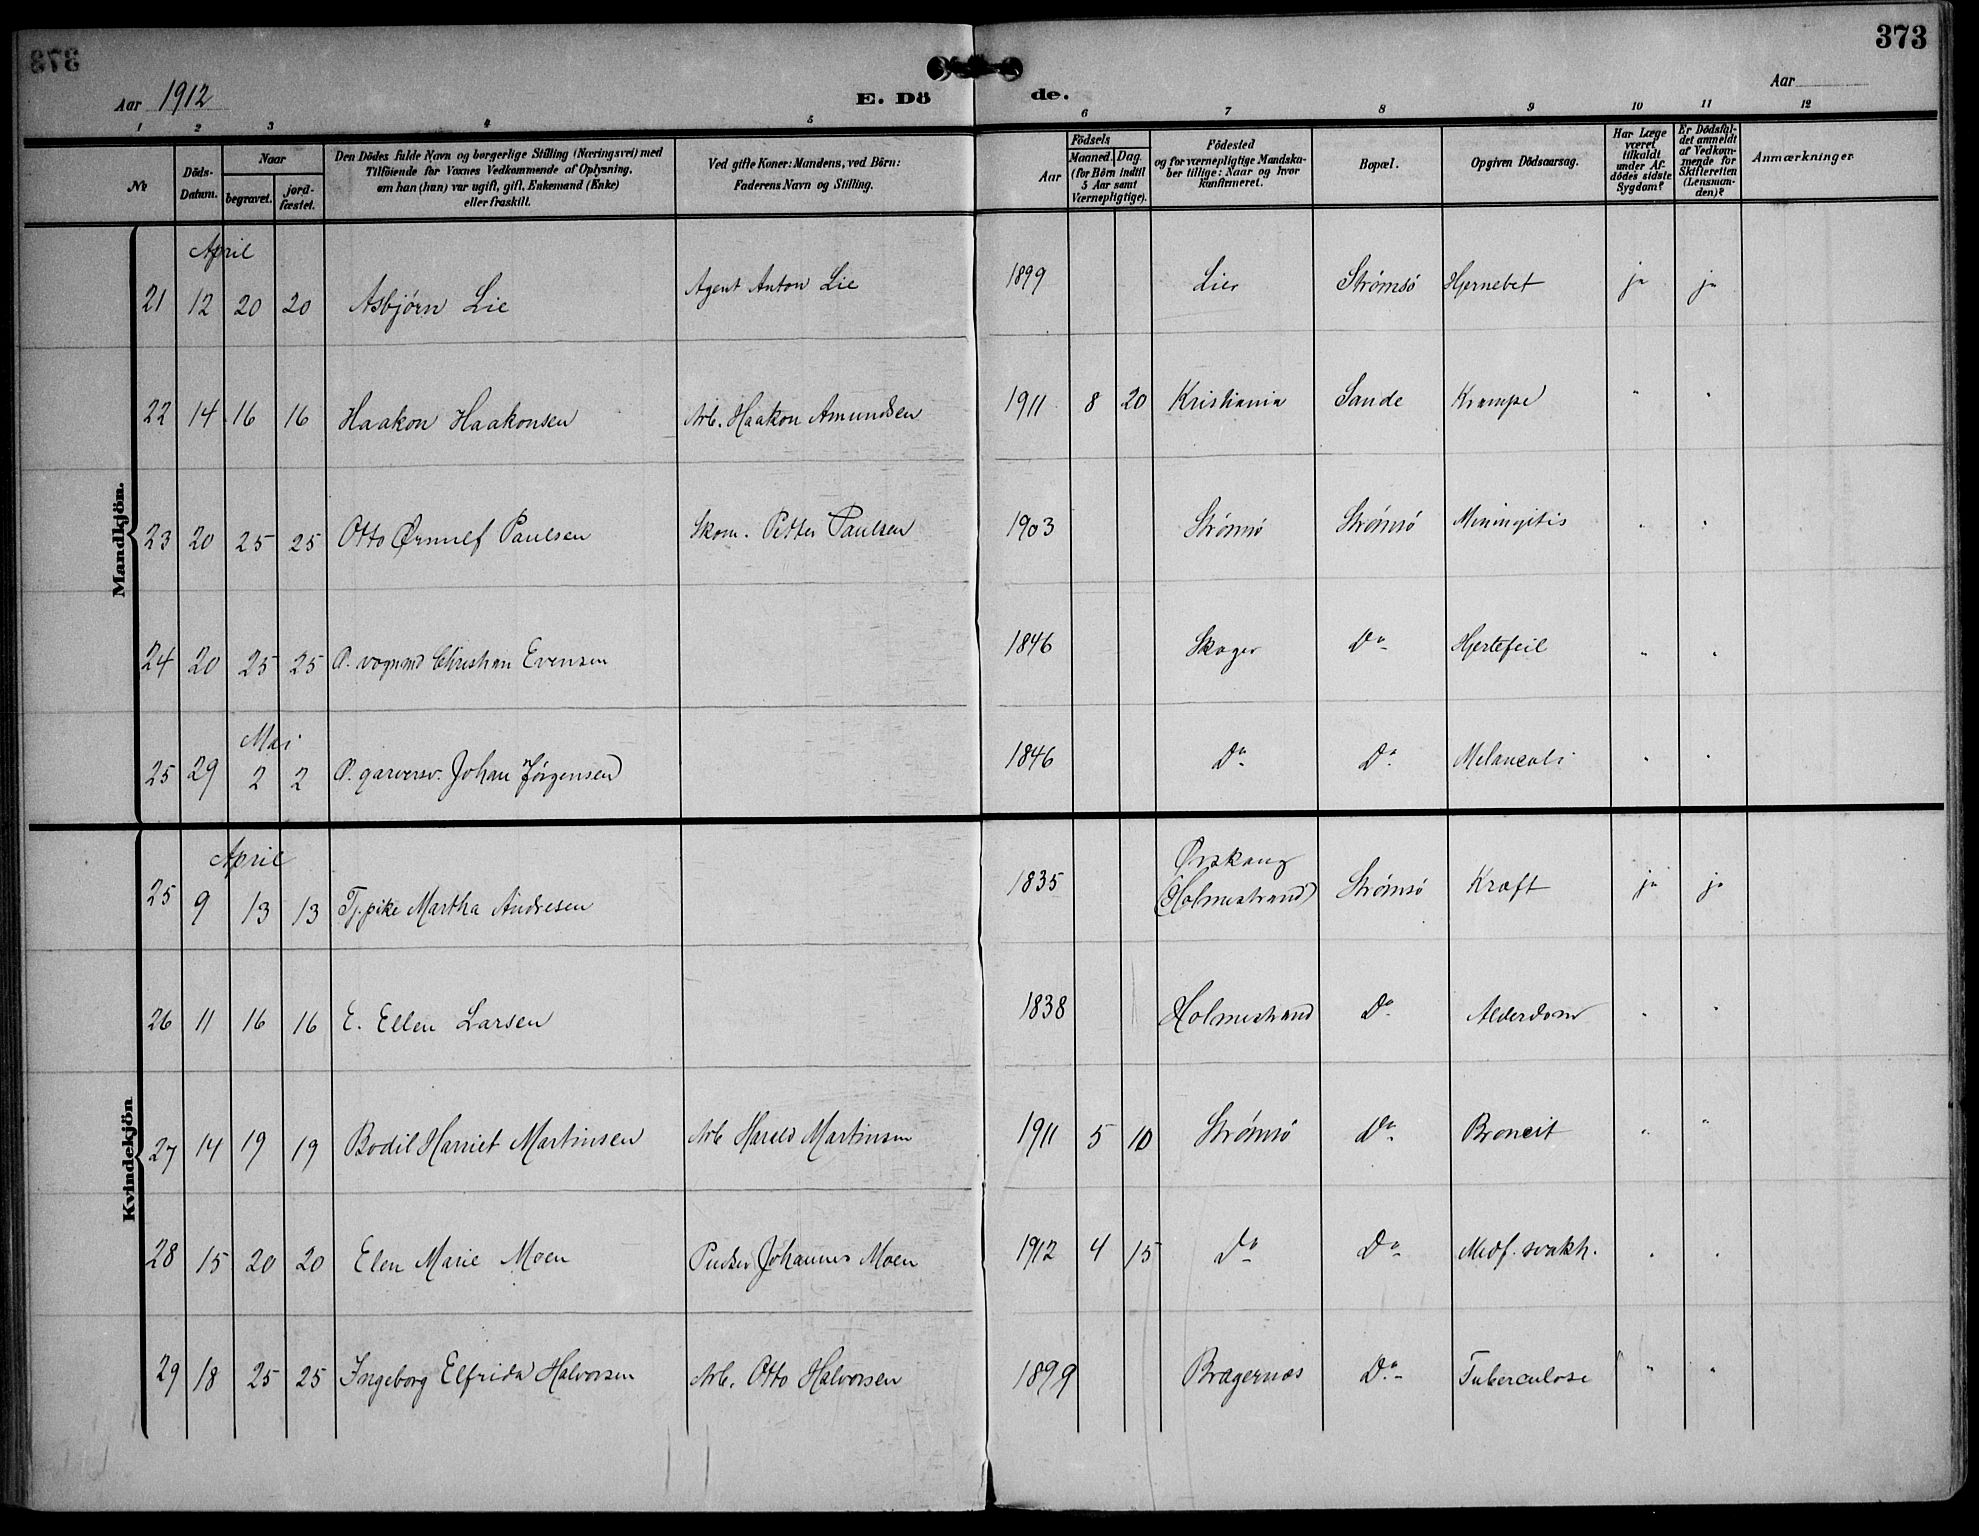 373
Aar 1912
E. Dö de.
Aar
1 2 3 4 5 6 7 8 9 10 11 12
№
Döds-Datum.
Naar
begravet.
jord-fæstet.
Den Dödes fulde Navn og borgerlige Stilling (Næringsvei) med
Tilföiende för Voxnes Vedkommende af Oplysning,
om han (hun) var ugift, gift, Enkemand (Enke)
eller fraskilt.
Ved gifte Koner: Mandens, ved Börn:
Faderens Navn og Stilling.
Födsels
Aar
Maaned. Dag.
(for Börn indtil
5 Aar samt
Værnepligtige).
Födested
og for værnepligtige Mandska-
ber tillige: Naar og hvor
konfirmeret.
Bopæl.
Opgiven Dödsaarsag.
Har Læge
været
tilkaldt
under Af-
dödes sidste
Sygdom?
Er Dödsfal-
det anmeldt
af Vedkom-
mende for
Skifteretten
(Lensman-
den)?
Anmærkninger
Mandkjön.
April
21 12 20 20 Asbjörn Lie Agent Anton Lie 1899 Lier Strømsö Hjernebet ja ja
22 14 16 16 Haakon Haakonsen Arb. Haakon Amundsen 1911 8 20 Kristiania Sande Krampe " "
23 20 25 25 Otto Ørnulf Paulsen Skom. Petter Paulsen 1903 Strømsø Strømsø Miningitis " "
24 20 25 25 Christian Evensen 1846 Skoger Do Hjertefeil " "
Mai
25 29 2 2 garversv. Johan Jørgensen 1846 Do Do Melancoli " "
Kvindekjön
April
25 9 13 13 Tj.pike Martha Andresen 1835 (Holmestrand) Strømsö Kræft ja ja
26 11 16 16 E. Ellen Larsen 1838 Holmestrand Do Alderdom " "
27 14 19 19 Bodil Harriet Martinsen Arb Harald Martinsen 1911 5 10 Strømsø Do Broncit " "
28 15 20 20 Elen Marie Moen Pudser Johannes Moen 1912 4 15 Do Do Medf. svakh. " "
29 18 25 25 Ingeborg Elfrida Halvorsen Arb. Otto Halvorsen 1899 Bragernæs Do Tuberculose " "